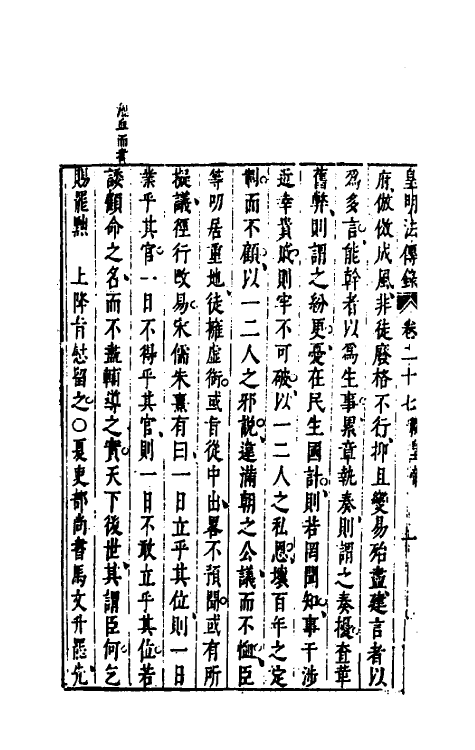 皇明法傳錄　卷二十七　武宗毅皇帝
府倣傚成風非徒廢格不行抑且變易殆盡建言者以
爲多言能幹者以爲生事累章執奏則謂之奏擾查革
舊弊則謂之紛更憂在民生國計則若罔聞知事干涉
近幸貴戚則牢不可破以一二人之私恩壞百年之定
制而不顧以一二人之邪說違滿朝之公議而不恤臣
等叨居重地徒擁虛銜或旨從中出畧不預聞或有所
擬議徑行改易宋儒朱熹有曰一日立乎其位則一日
業乎其官一日不得乎其官則一日不敢立乎其位若
諉顧命之名而不盡輔導之實天下後世其謂臣何乞
賜罷黜　上降旨慰留之○夏吏部尚書馬文升罷先
瀝血而書